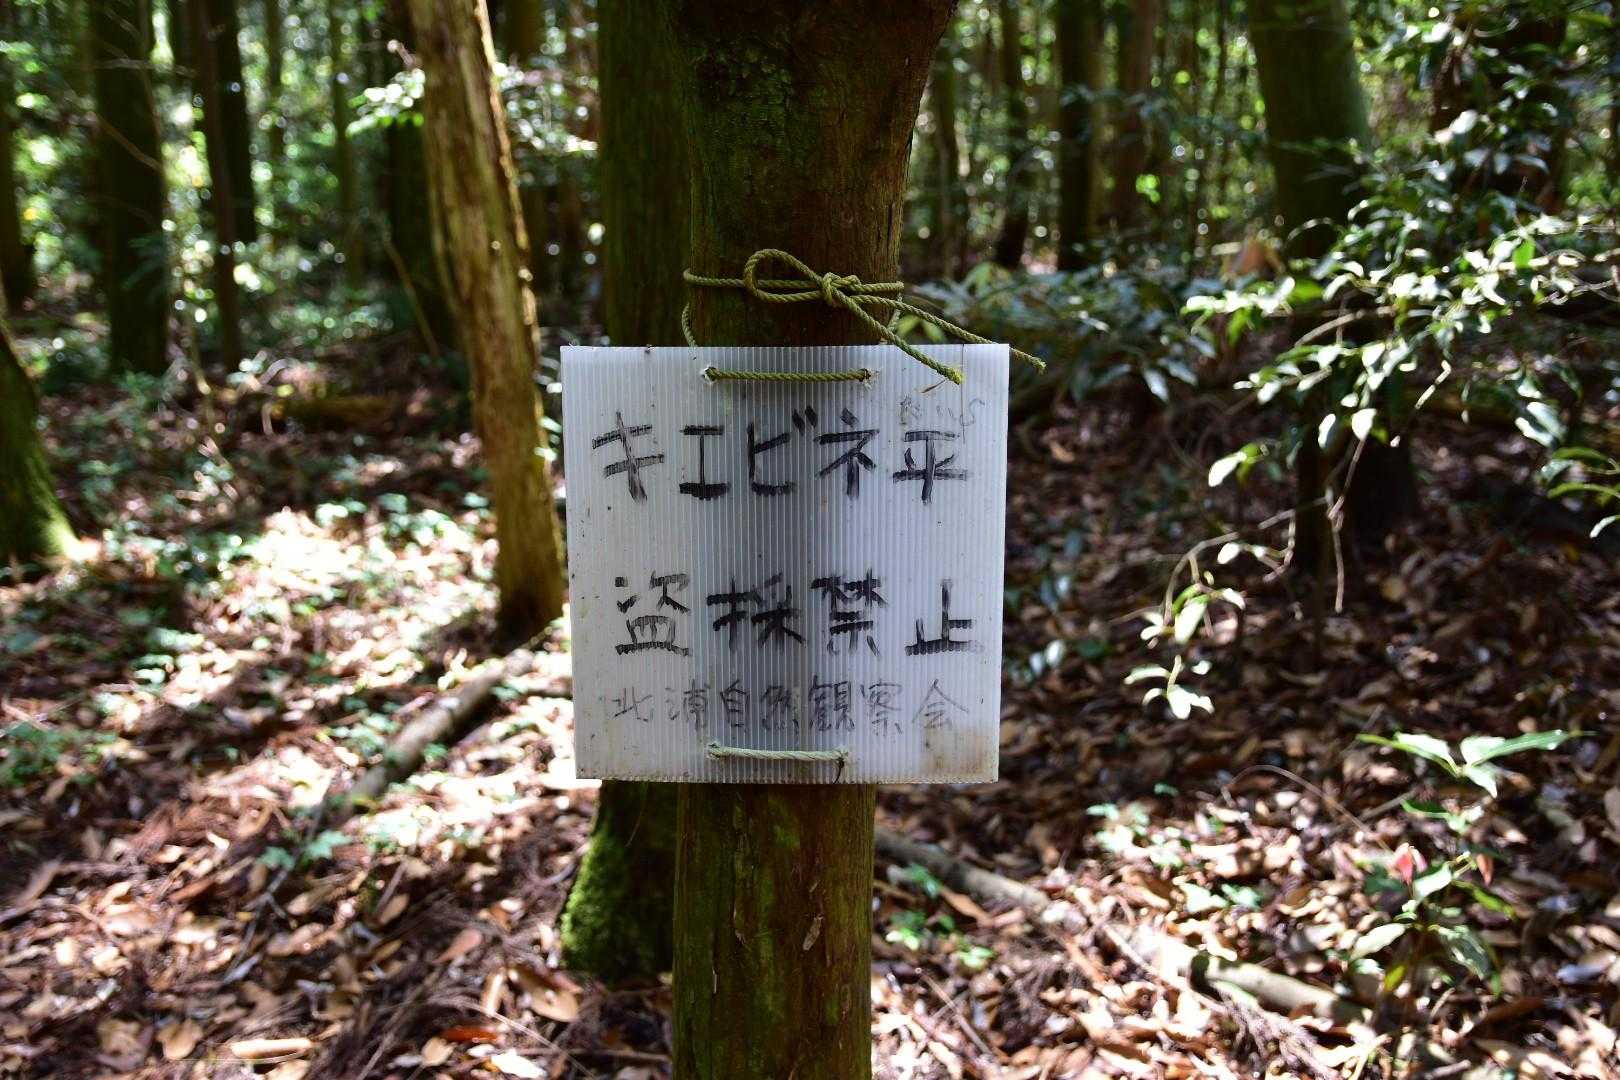 キエビネ平
盗採禁止
北浦自然観察会